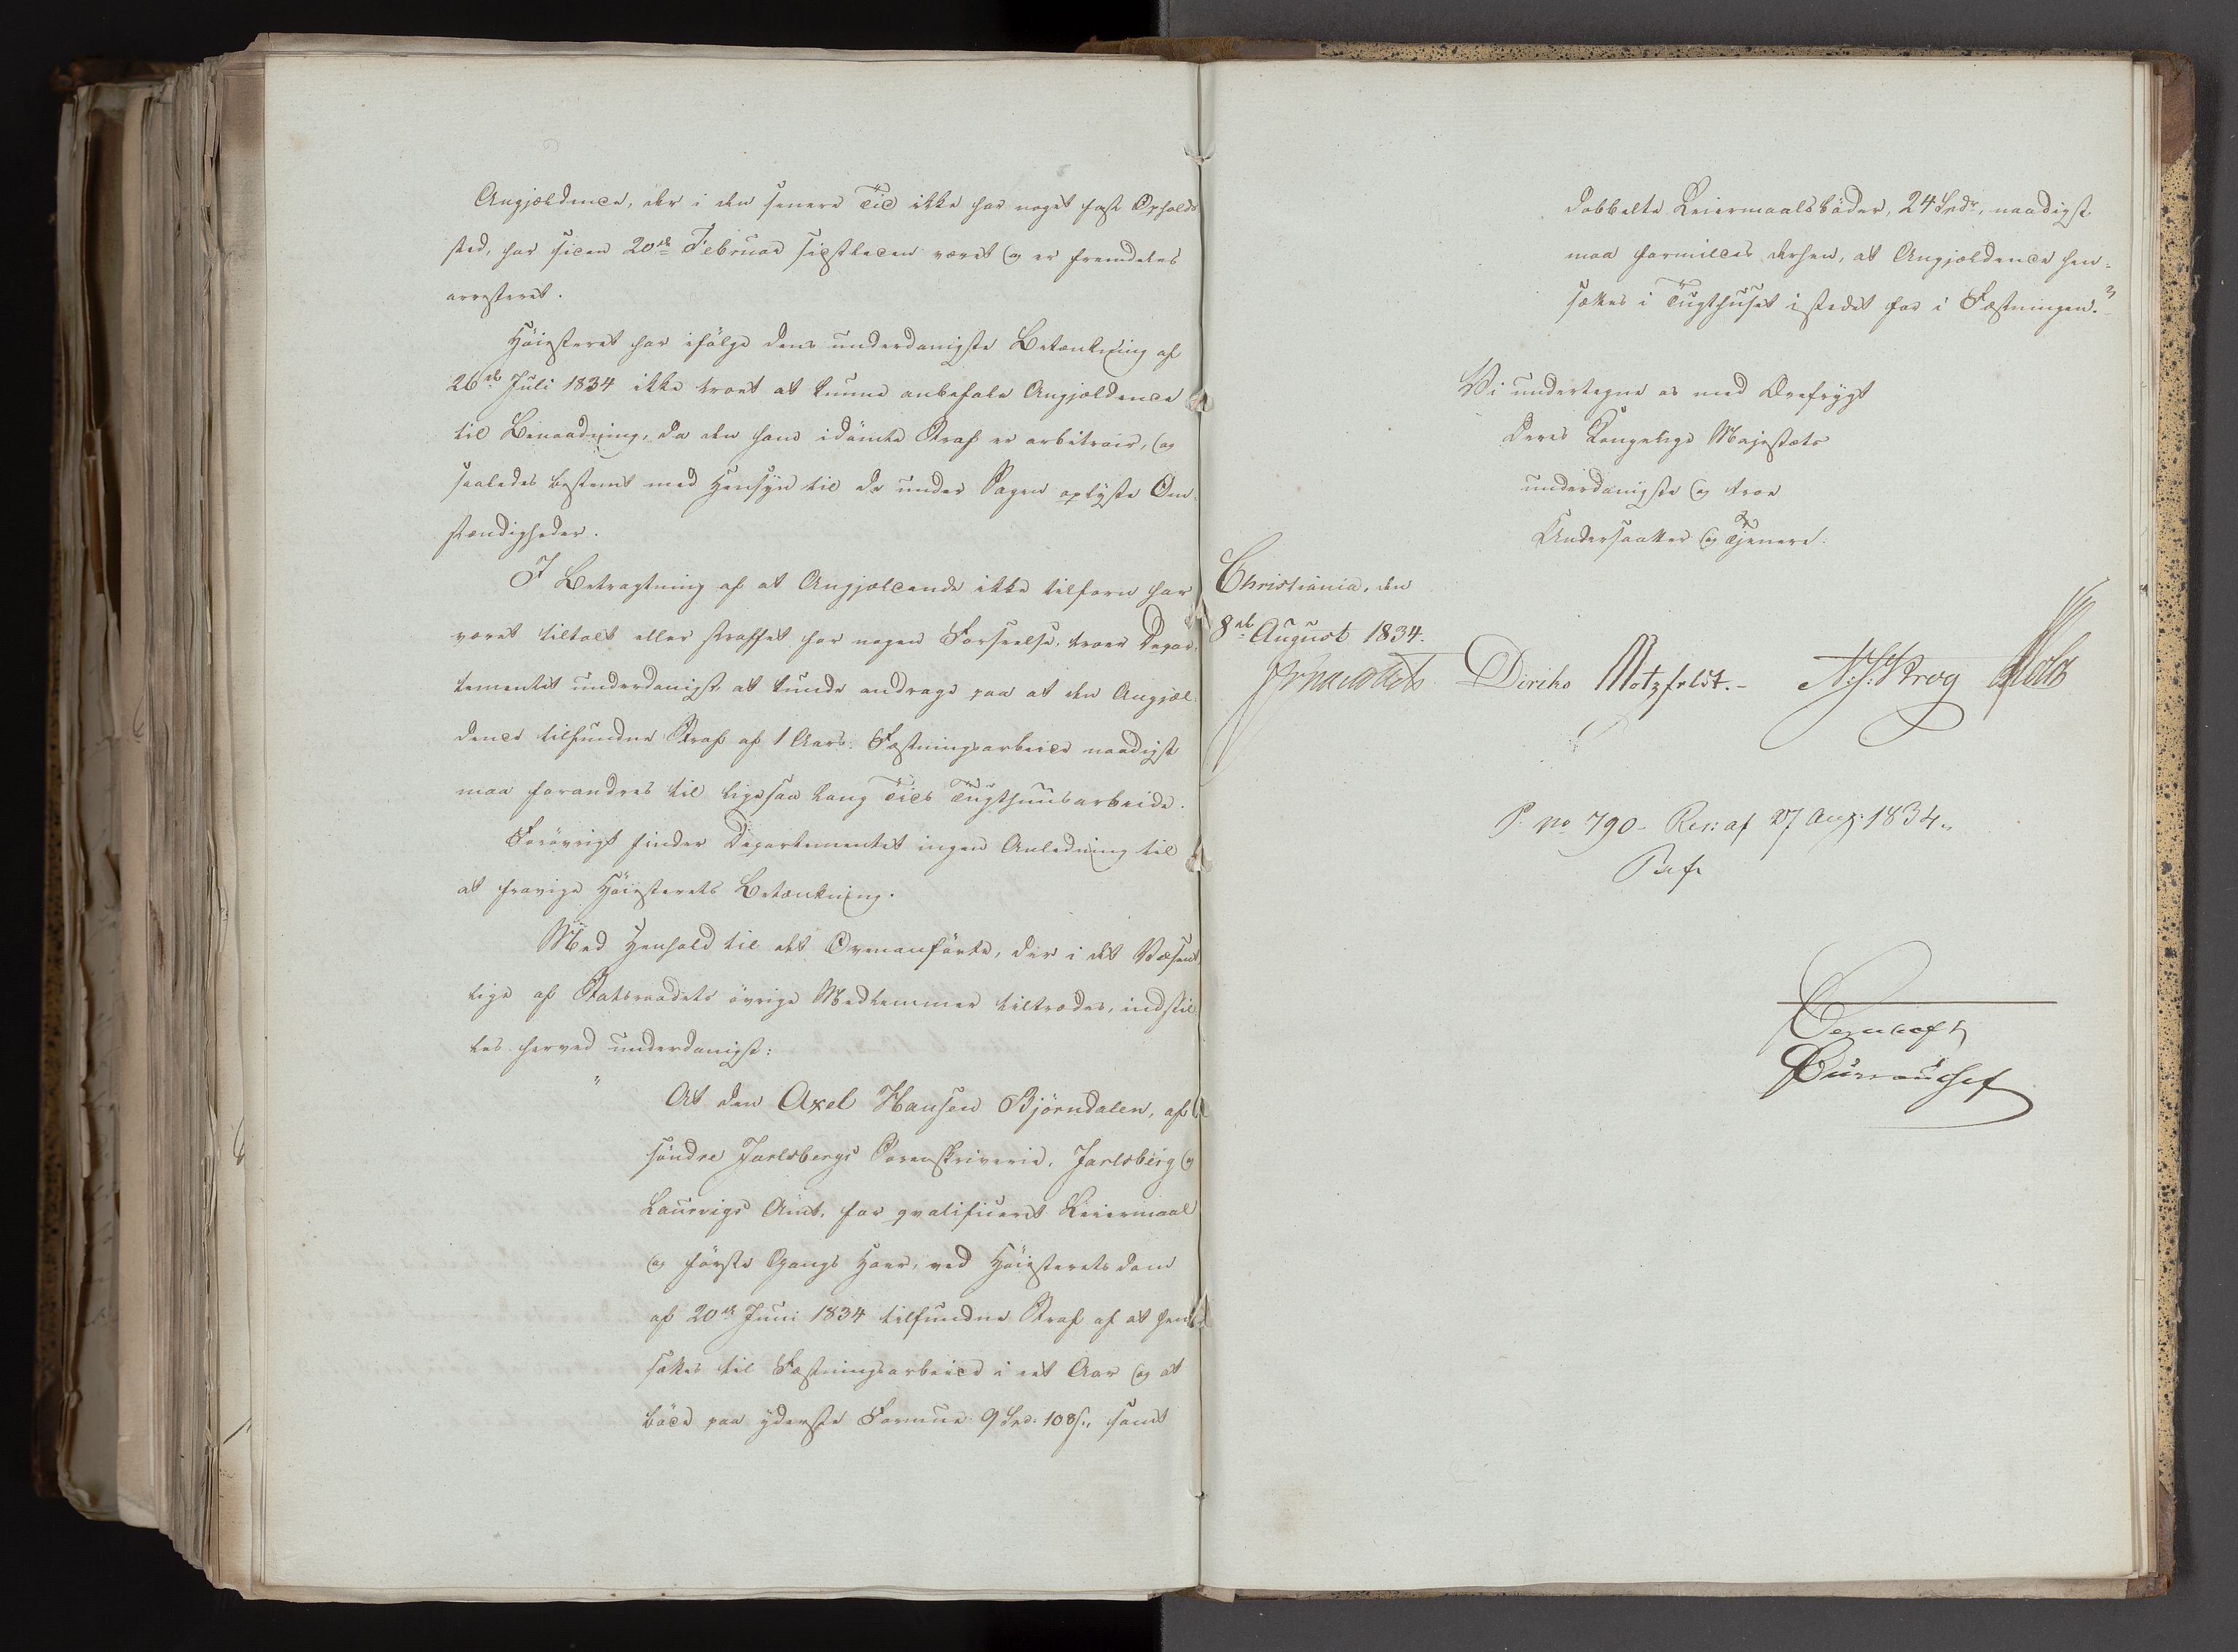 Angjældende, der i den senere Tid ikke har noget fast Opholds
sted, har siden 20de Februar sidstleden været og er fremdeles
arresteret.
Höiesteret har ifölge dens underdanigste Betænkning af
26de Juli 1834 ikke troet at kunne anbefale Angjældende
til Benaadning, da den ham idömte Straf er arbitrair, og
saaledes bestemt med Hensyn til de under Sagen oplyste Om-
stændigheder.
I Betragtning af at Angjældende ikke tilforn har
været tiltalt eller straffet for nogen Forseelse, troer Depar-
tementet underdanigst at kunde andrage paa at den Angjæl-
dende tilfundne Straf af 1 Aars Fæstningsarbeide naadigst
maa forandres til ligesaa lang Tids Tugthuusarbeide.
Forövrigt finder Departementet ingen Anledning til
at fravige Höiesterets Betænkning.
Med Henhold til det Ovenanförte, der i det Væsent-
lige af Statsraadets övrige Medlemmer tiltrædes, indstil-
les herved underdanigst:
"At den Axel Hansen Björndalen, af
söndre Jarlsbergs Sorenskriverie, Jarlsberg og
Laurvigs Amt, for qvalificeret Leiermaal
og förste Gangs Hoer, ved Höiesterets Dom
af 20de Juni 1834 tilfundne Straf af at hen-
sættes til Fæstningsarbeide i eet Aar og at
böde paa yderste Formue 9 Spd: 108 s., samt
dobbelte Leiermaalsböder, 24 Spdr, naadigst
maa formildes derhen, at Angjældende hen-
sættes i Tugthuset istedet for i Fæstningen."
Vi undertegne os med Ærefrygt
Deres Kongelige Majestæts
underdanigste og troe
Undersaatter og Tjenere.
Christiania, den
8de August 1834.
Diriks Motzfeldt.- N. J. Krog
P. no 790 - Res: af 27 Aug: 1834.